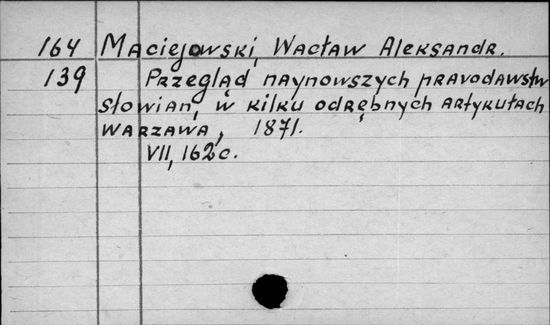 164 Maciejowski, Wacław Aleksandr.
139 Przegląd naynowszych pravodawstw
słowian, w kilku odrębnych artykułach
Warzawa, 1871.
VII, 162c.